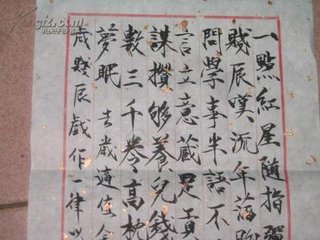 一點紅星隨指彈
賤辰嘆流年落
問學事半語不
言立意藏足
謀攢够養兒錢
數三千卷高枕
夢眠 去歲適值
歲賤辰戲作一律